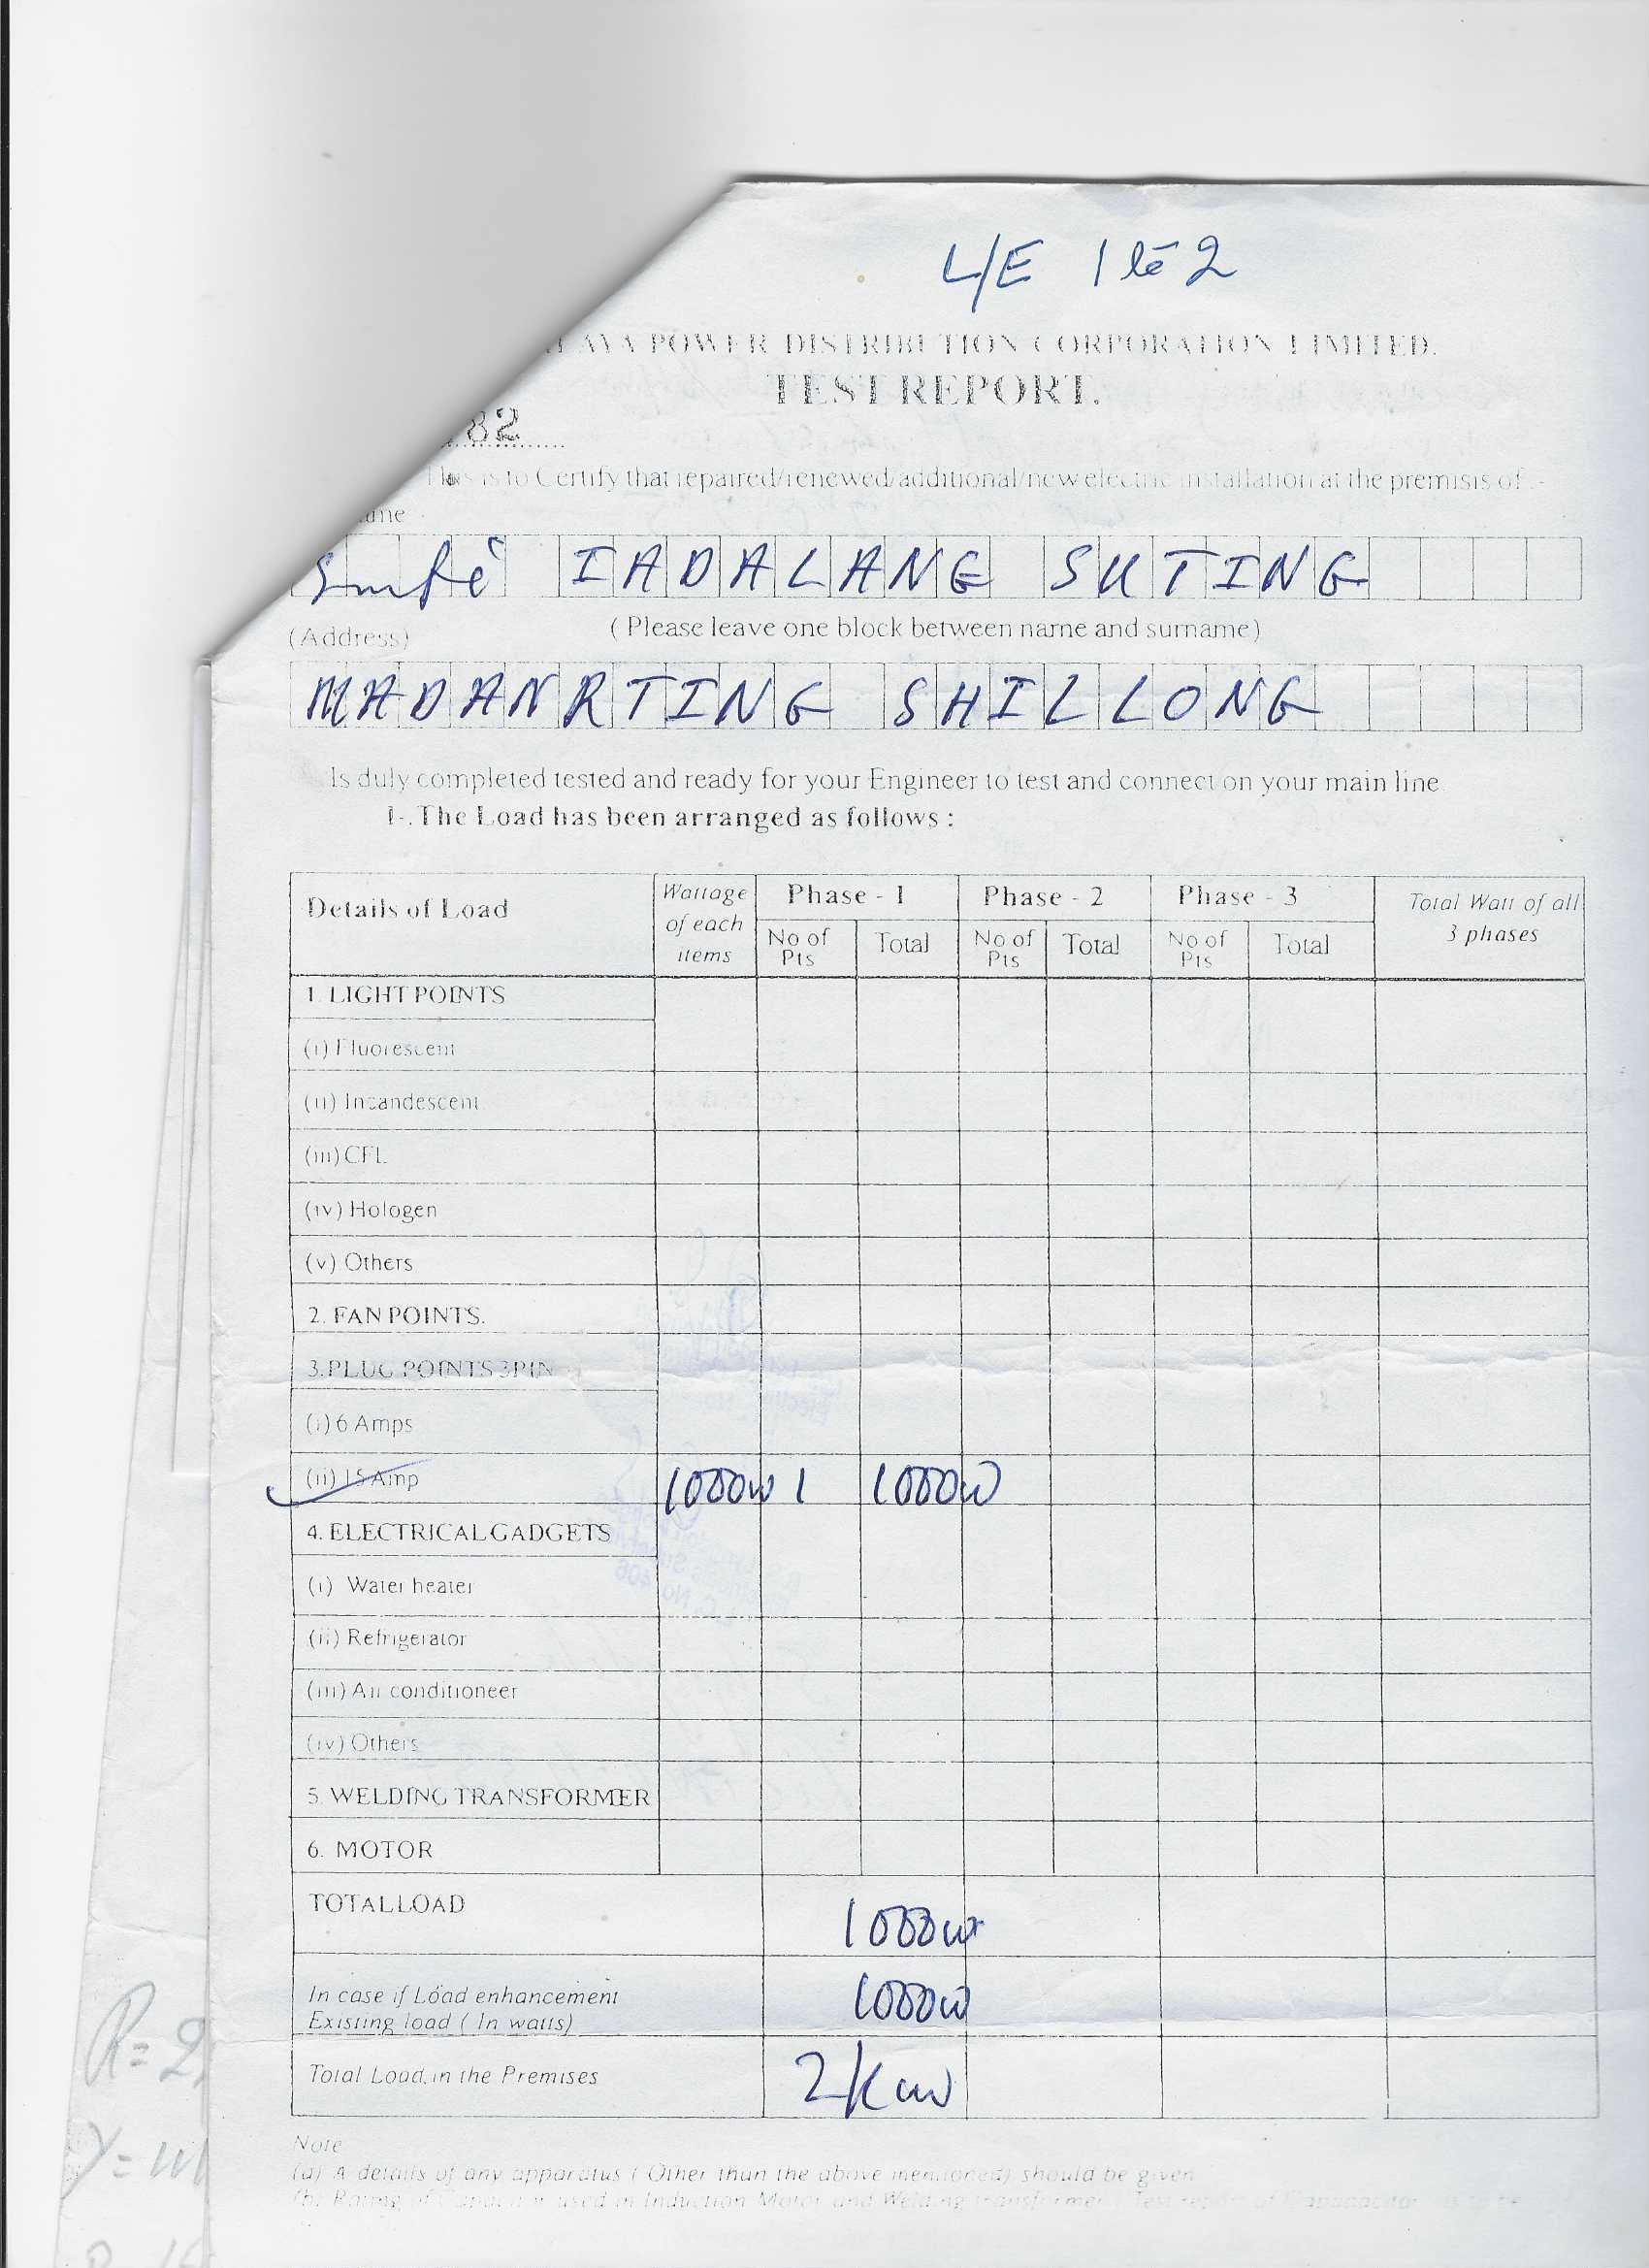 L/E 1 to 2
AYA POWER DISTRIBUTION CORPORATION LIMITED.
TEST REPORT.
82
This is to Certify that repaired/renewed/additional/new electric installation at the premisis of :-
ame
Smti IADALANG SUTING
(Address) ( Please leave one block between name and surname)
MADANRTING SHILLONG
Is duly completed tested and ready for your Engineer to test and connect on your main line
I-.The Load has been arranged as follows :
Details of Load Wattage of each items Phase - 1 Phase - 2 Phase - 3 Total Watt of all 3 phases
No of Pts Total No of Pts Total No of Pts Total
1. LIGHT POINTS
(i) Fluorescent
(ii) Incandescent
(iii) CFL
(iv) Hologen
(v) Others
2. FAN POINTS.
3. PLUG POINTS 3PIN
(i) 6 Amps
(ii) 15 Amp 1000w 1 1000w
4. ELECTRICAL GADGETS
(i) Water heater
(ii) Refrigerator
(iii) Air conditioneer
(iv) Others
5. WELDING TRANSFORMER
6. MOTOR
TOTAL LOAD 1000w
In case if Load enhancement 1000w
Existing load ( In watts)
Total Load, in the Premises 2Kw
Note
(a) A details of any apparatus ( Other than the above mentioned) should be given
used in Induction Motor and Welding transformer
R=2
Y=